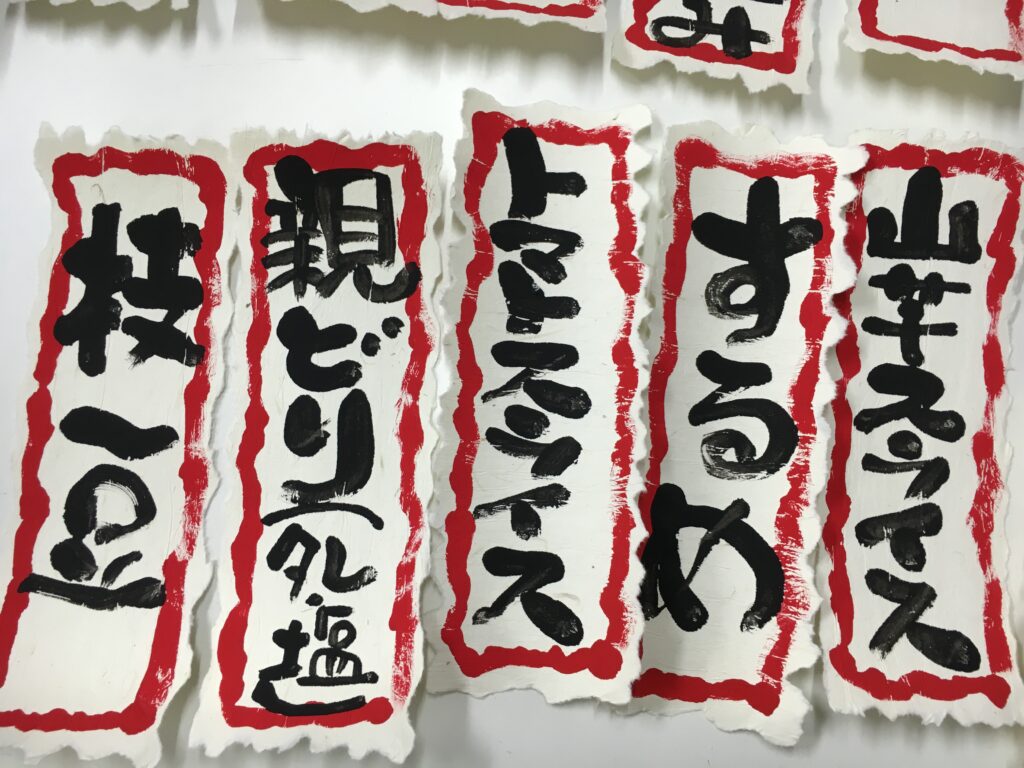 み
山芋スライス
するめ
トマトスライス
親どり(タレ・塩)
枝豆